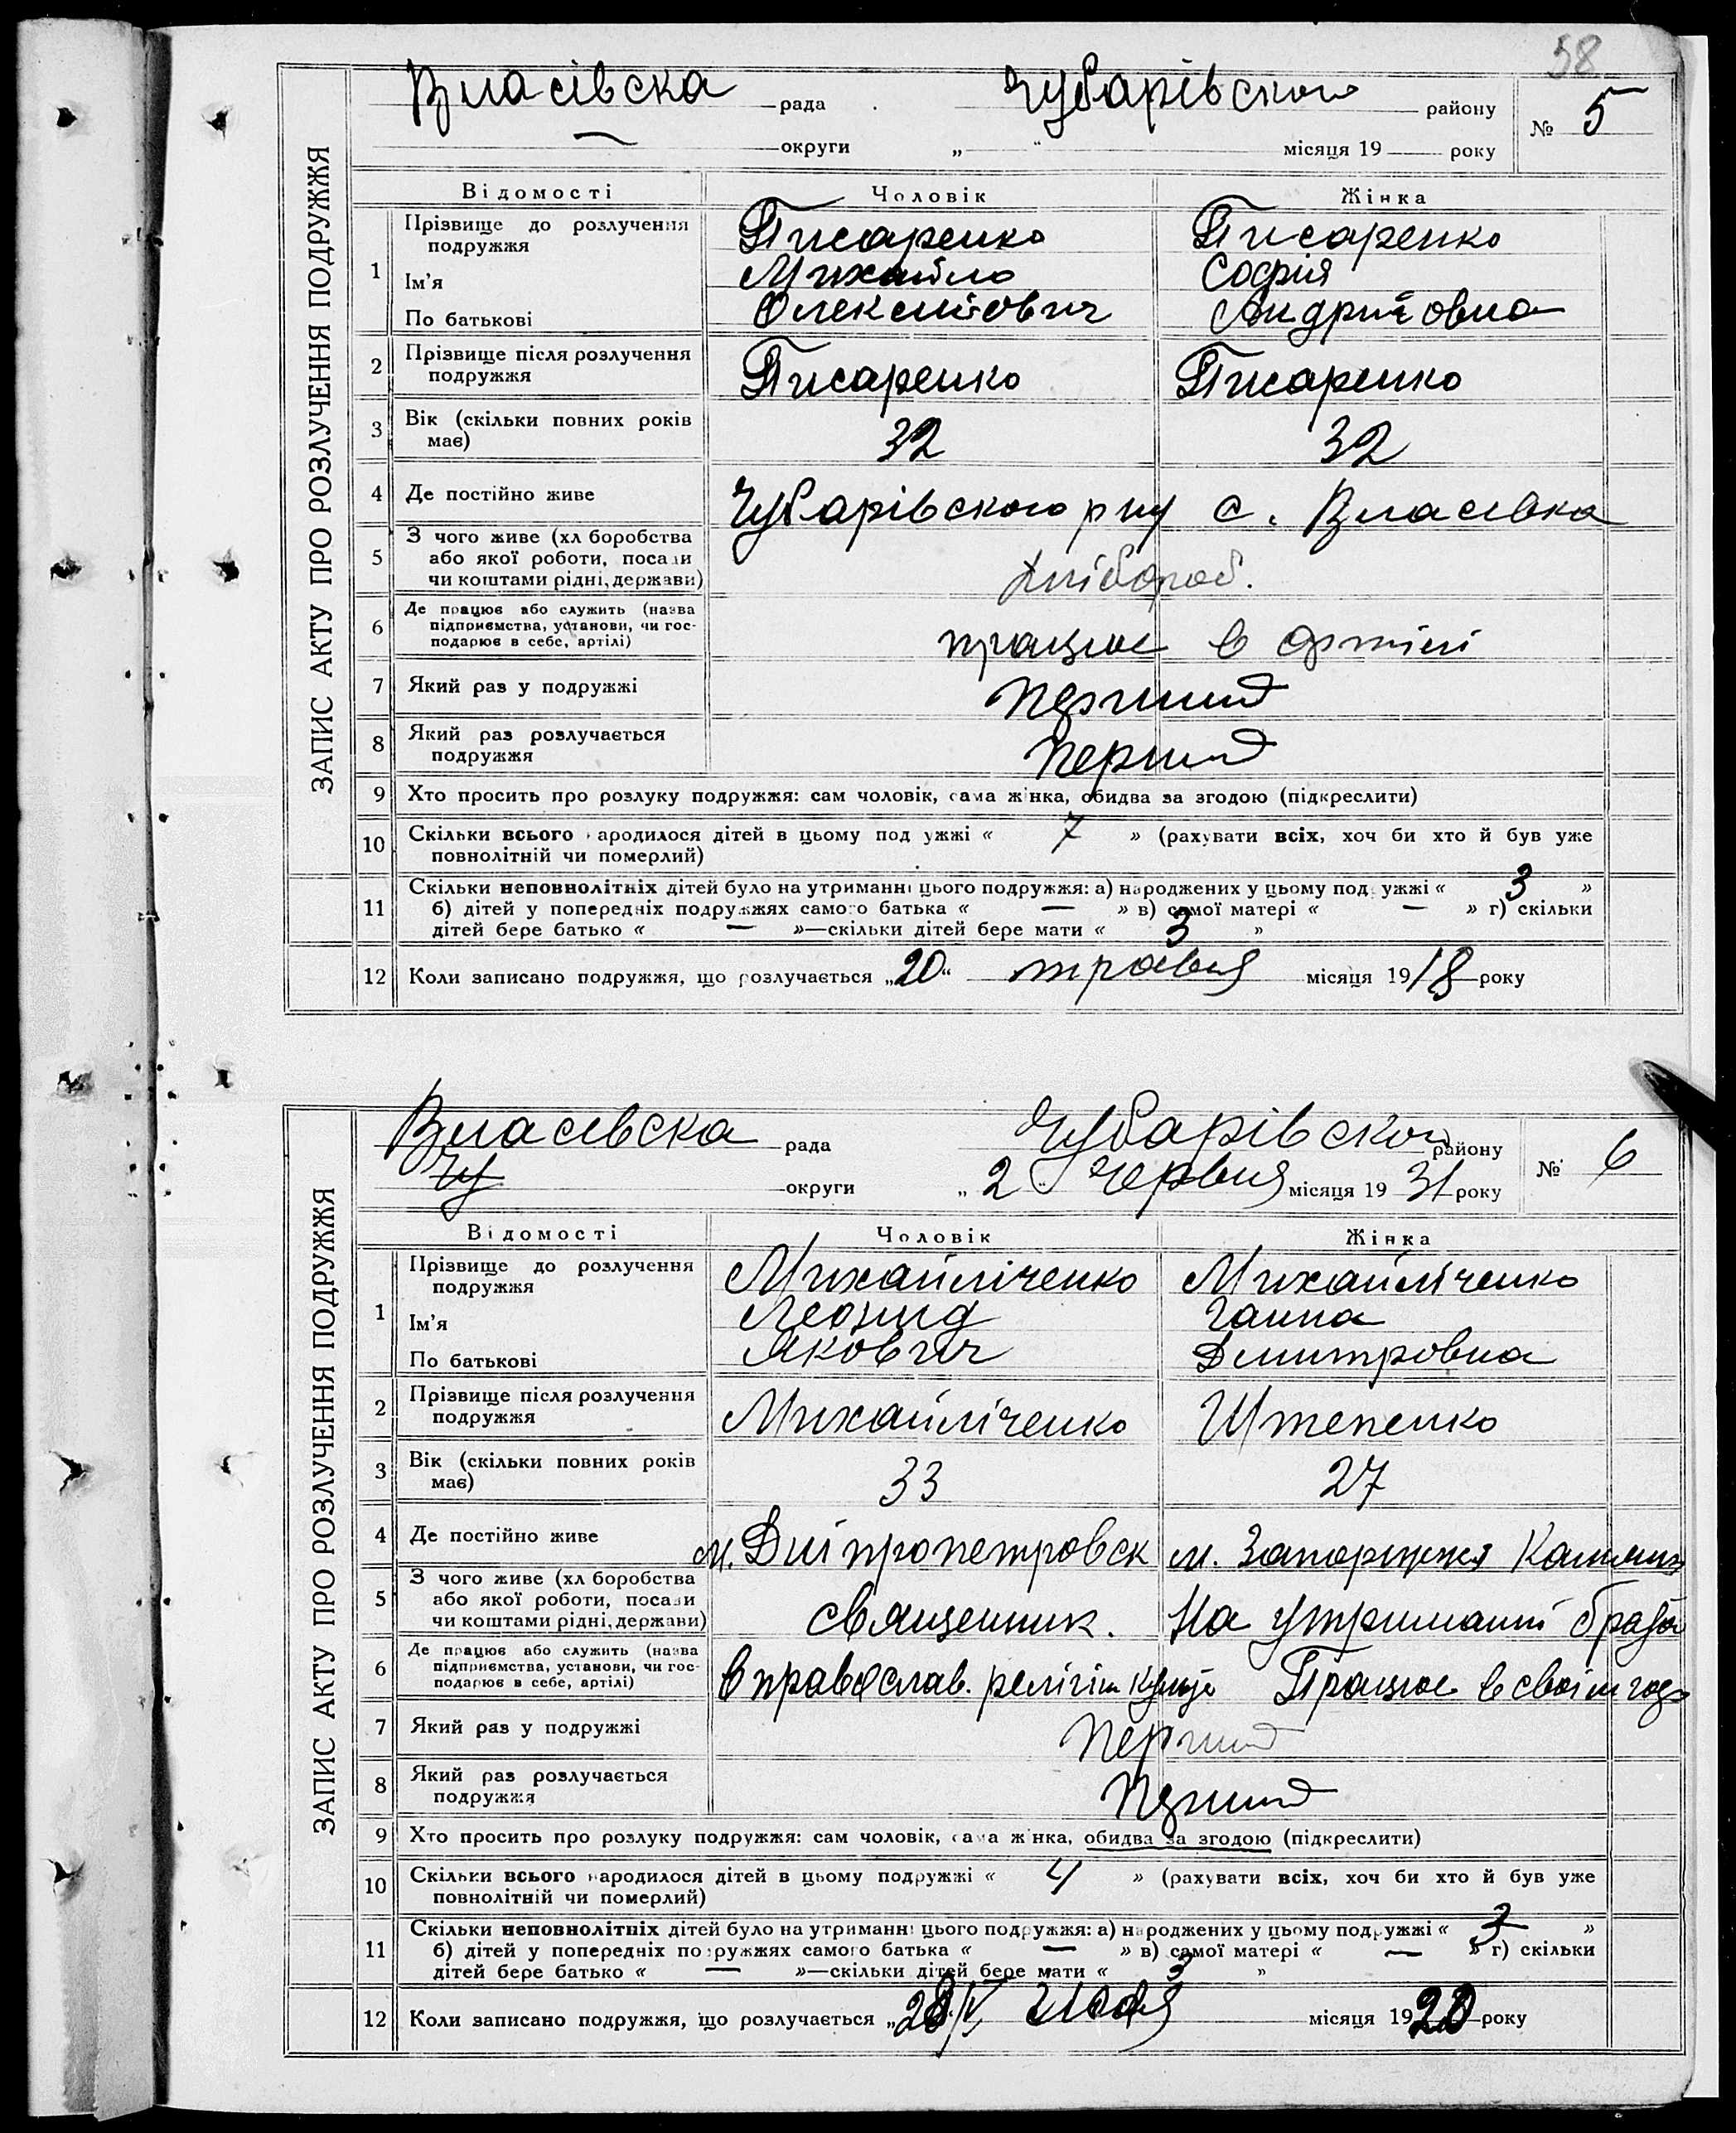 58
Власівска рада Чубарівського району № 5
— округи „ — “ місяця 19 — року
ЗАПИС АКТУ ПРО РОЗЛУЧЕННЯ ПОДРУЖЖЯ
Відомості Чоловік Жінка
1 Прізвище до розлучення подружжя Писаренко Писаренко
Ім'я Михайло Софія
По батькові Олексійович Андрійовна
2 Прізвище після розлучення подружжя Писаренко Писаренко
3 Вік (скільки повних років має) 32 32
4 Де постійно живе Чубарівського р ну с. Власівка
5 З чого живе (хл боробства або якої роботи, посади чи коштами рідні, держави) хлібороб.
6 Де працює або служить (назва підприємства, установи, чи господарює в себе, артілі) працює в артілі
7 Який раз у подружжі перший
8 Який раз розлучається подружжя перший
9 Хто просить про розлуку подружжя: сам чоловік, сама жінка, обидва за згодою (підкреслити)
10 Скільки всього народилося дітей в цьому подружжі « 7 » (рахувати всіх, хоч би хто й був уже
повнолітній чи померлий)
11 Скільки неповнолітніх дітей було на утриманні цього подружжя: а) народжених у цьому подружжі « 3 »
б) дітей у попередніх подружжях самого батька « — » в) самої матері « — » г) скільки
дітей бере батько « — »—скільки дітей бере мати « 3 »
12 Коли записано подружжя, що розлучається „20“ травня місяця 1918 року
Власівска рада Чубарівского району № 6
Чу округи „ 2 “ червня місяця 19 31 року
ЗАПИС АКТУ ПРО РОЗЛУЧЕННЯ ПОДРУЖЖЯ
Відомості Чоловік Жінка
1 Прізвище до розлучення подружжя Михайліченко Михайліченко
Ім'я Леонид Ганна
По батькові Якович Дмитровна
2 Прізвище після розлучення подружжя Михайліченко Штепенко
3 Вік (скільки повних років має) 33 27
4 Де постійно живе м. Дніпропетровск м. Запоріжжя
5 З чого живе (хл боробства або якої роботи, посади чи коштами рідні, держави) священник. На утриманні брата
6 Де працює або служить (назва підприємства, установи, чи господарює в себе, артілі) в православ. релігін Працює в своїм
7 Який раз у подружжі перший
8 Який раз розлучається подружжя перший
9 Хто просить про розлуку подружжя: сам чоловік, сама жінка, обидва за згодою (підкреслити)
10 Скільки всього народилося дітей в цьому подружжі « 4 » (рахувати всіх, хоч би хто й був уже
повнолітній чи померлий)
11 Скільки неповнолітніх дітей було на утриманні цього подружжя: а) народжених у цьому подружжі « 3 »
б) дітей у попередніх подружжях самого батька « — » в) самої матері « — » г) скільки
дітей бере батько « — »—скільки дітей бере мати « 3 »
12 Коли записано подружжя, що розлучається „28/V місяця 1920 року